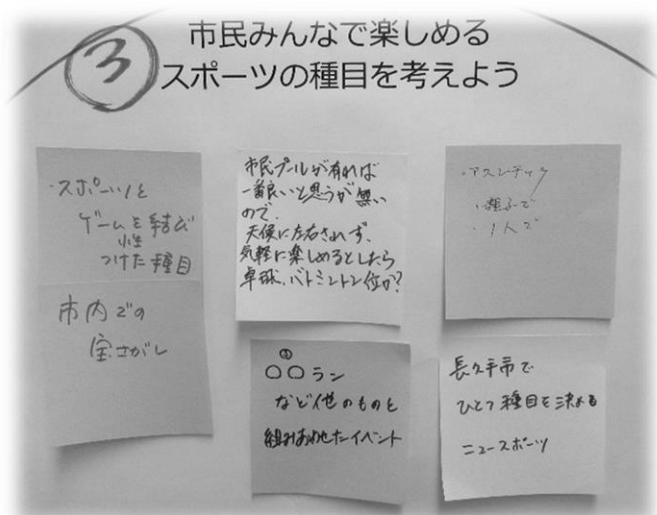 ③
市民みんなで楽しめる
スポーツの種目を考えよう
・スポーツと
ゲーム性を結び
つけた種目
市民プールが有れば
一番良いと思うが無い
ので、
天候に左右されず、
気軽に楽しめるとしたら
卓球、バトミントン位か?
・アスレチック
・親子で
・1人で
市内での
宝さがし
○○ラン
など他のものと
組みあわせたイベント
長久手市で
ひとつ種目を決める
ニュースポーツ